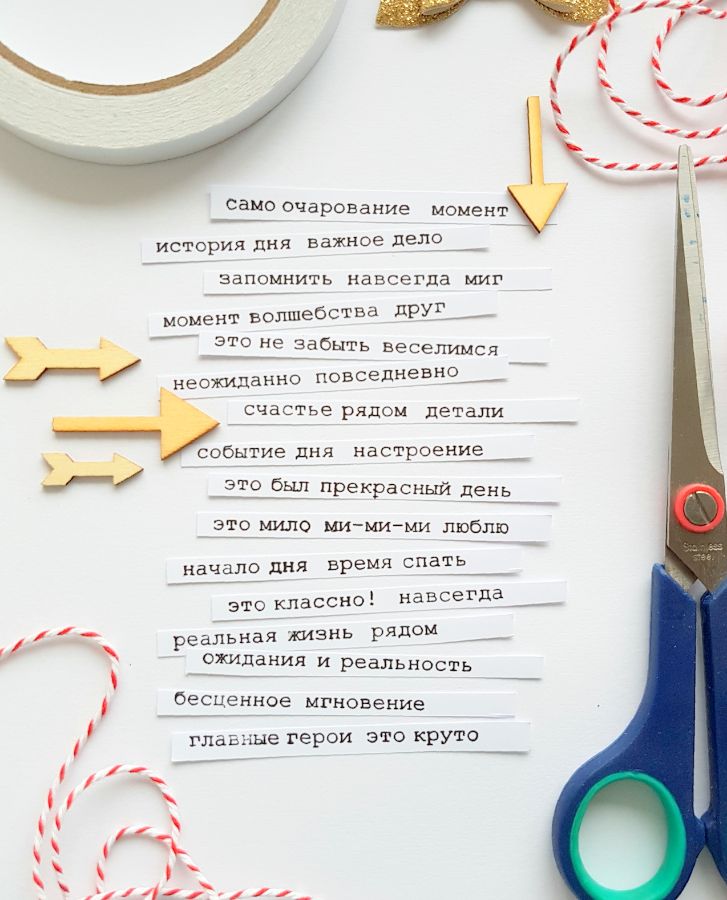 само очарование момент
история дня важное дело
запомнить навсегда миг
момент волшебства друг
это не забыть веселимся
неожиданно повседневно
счастье рядом детали
событие дня настроение
это был прекрасный день
это мило ми-ми-ми люблю
начало дня время спать
это классно! навсегда
реальная жизнь рядом
ожидания и реальность
бесценное мгновение
главные герои это круто
Stainless
steel